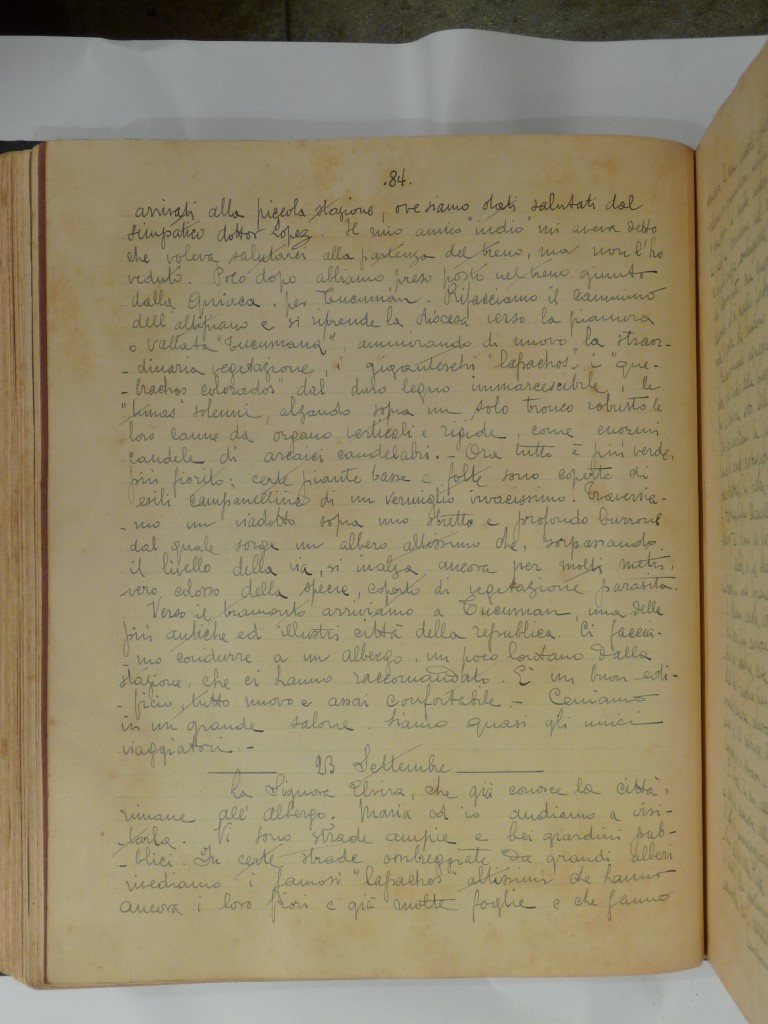 .84.
arrivati alla piccola stazione, ove siamo stati salutati dal
simpatico dottor Lopez. Il mio amico "indio" mi aveva detto
che voleva salutarci alla partenza del treno, ma non l'ho
veduto. Poco dopo abbiamo preso posto nel treno giunto
dalla Quiaca, per Tucumán. Rifacciamo il cammino
dell'altipiano e si riprende la discesa verso la pianura
o vallata "Tucumana", ammirando di nuovo la straor-
-dinaria vegetazione, i giganteschi "lapachos", i "que-
-brachos colorados" dal duro legno immarcescibile, le
"tunas" solenni, alzando sopra un solo tronco robusto le
loro canne da organo verticali e rigide, come enormi
candele di arcaici candelabri. - Ora tutto è più verde,
più fiorito; certe piante basse e folte sono coperte di
esili campanelline di un vermiglio vivacissimo. Traversia-
-mo un viadotto sopra uno stretto e profondo burrone
dal quale sorge un albero altissimo che, sorpassando
il livello della via, si inalza ancora per molti metri,
vero colosso della specie, coperto di vegetazione parasita.
Verso il tramonto arriviamo a Tucuman, una delle
più antiche ed illustri città della republica. Ci faccia-
-mo condurre a un albergo, un poco lontano dalla
stazione, che ci hanno raccomandato. È un buon edi-
-ficio, tutto nuovo e assai confortabile. - Ceniamo
in un grande salone. Siamo quasi gli unici
viaggiatori. -
23 Settembre
La Signora Elvira, che già conosce la città,
rimane all'Albergo. Maria ed io andiamo a visi-
-tarla. Vi sono strade ampie e bei giardini pub-
-blici. In certe strade ombreggiate da grandi alberi
rivediamo i famosi "lapachos" altissimi che hanno
ancora i loro fiori e già molte foglie e che fanno